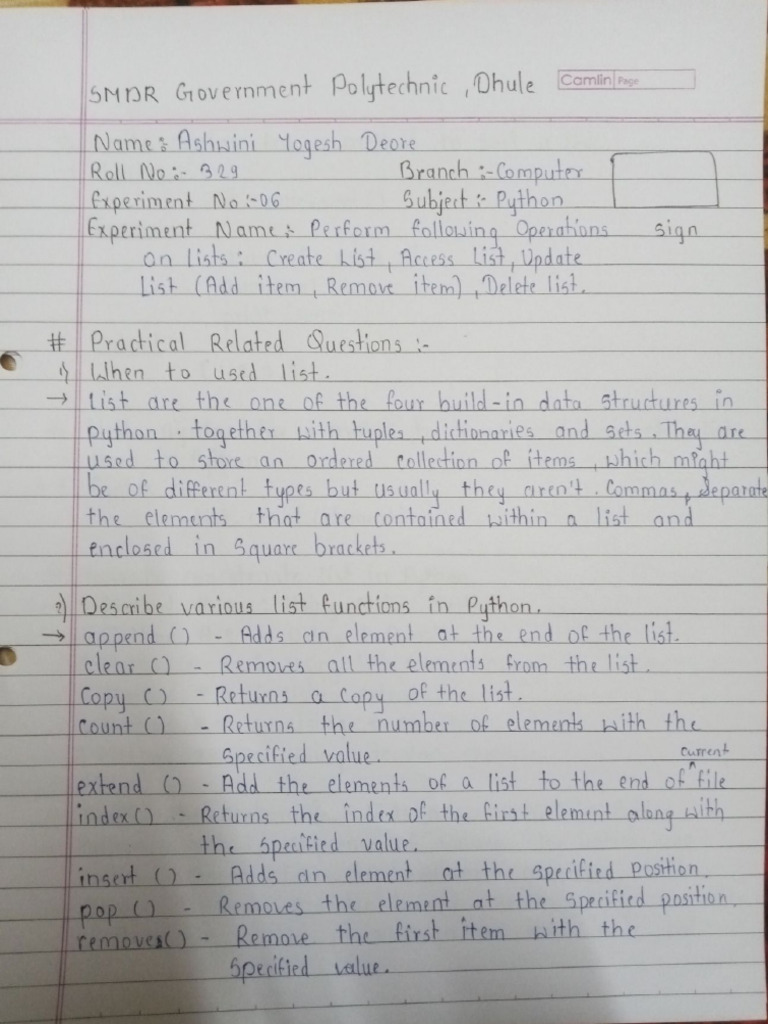 SMDR Government Polytechnic, Dhule Camlin Page
Name:- Ashwini Yogesh Deore
Roll No:- 329 Branch :- Computer
Experiment No :- 06 Subject :- Python
Experiment Name :- Perform following Operations sign
on lists : Create List, Access List, Update
List (Add item, Remove item), Delete list.
# Practical Related Questions :-
1) When to used list.
→ List are the one of the four build-in data structures in
python. together with tuples, dictionaries and sets. They are
used to store an ordered collection of items, which might
be of different types but usually they aren't. Commas, Separate
the elements that are contained within a list and
enclosed in square brackets.
2) Describe various list functions in Python.
→ append () - Adds an element at the end of the list.
clear () - Removes all the elements from the list.
Copy () - Returns a copy of the list.
count () - Returns the number of elements with the
specified value.
current
extend () - Add the elements of a list to the end of ^ file
index() - Returns the index of the first element along with
the specified value.
insert () - Adds an element at the specified position.
pop () - Removes the element at the specified position.
removes() - Remove the first item with the
specified value.